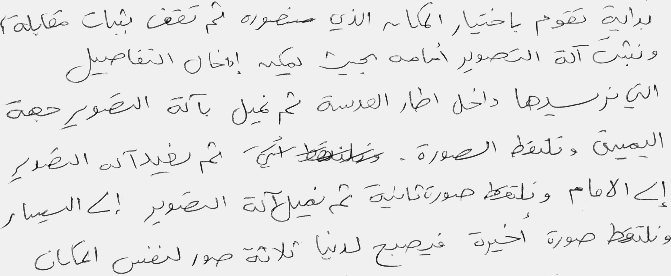 بداية نقوم باختيار المكان الذي سنصوره ثم نقف بثبات مقابله
ونثبت آلة التصوير أمامه بحيث يمكن إدخال التفاصيل
التي نريدها داخل اطار العدسة ثم نميل بآلة التصوير جهة
اليمين ونلتقط الصورة. ثم نعيد آلة التصوير
إلى الامام ونلتقط صورة ثانية ثم نميل آلة التصوير إلى اليسار
ونلتقط صورة أخيرة فيصبح لدينا ثلاثة صور لنفس المكان